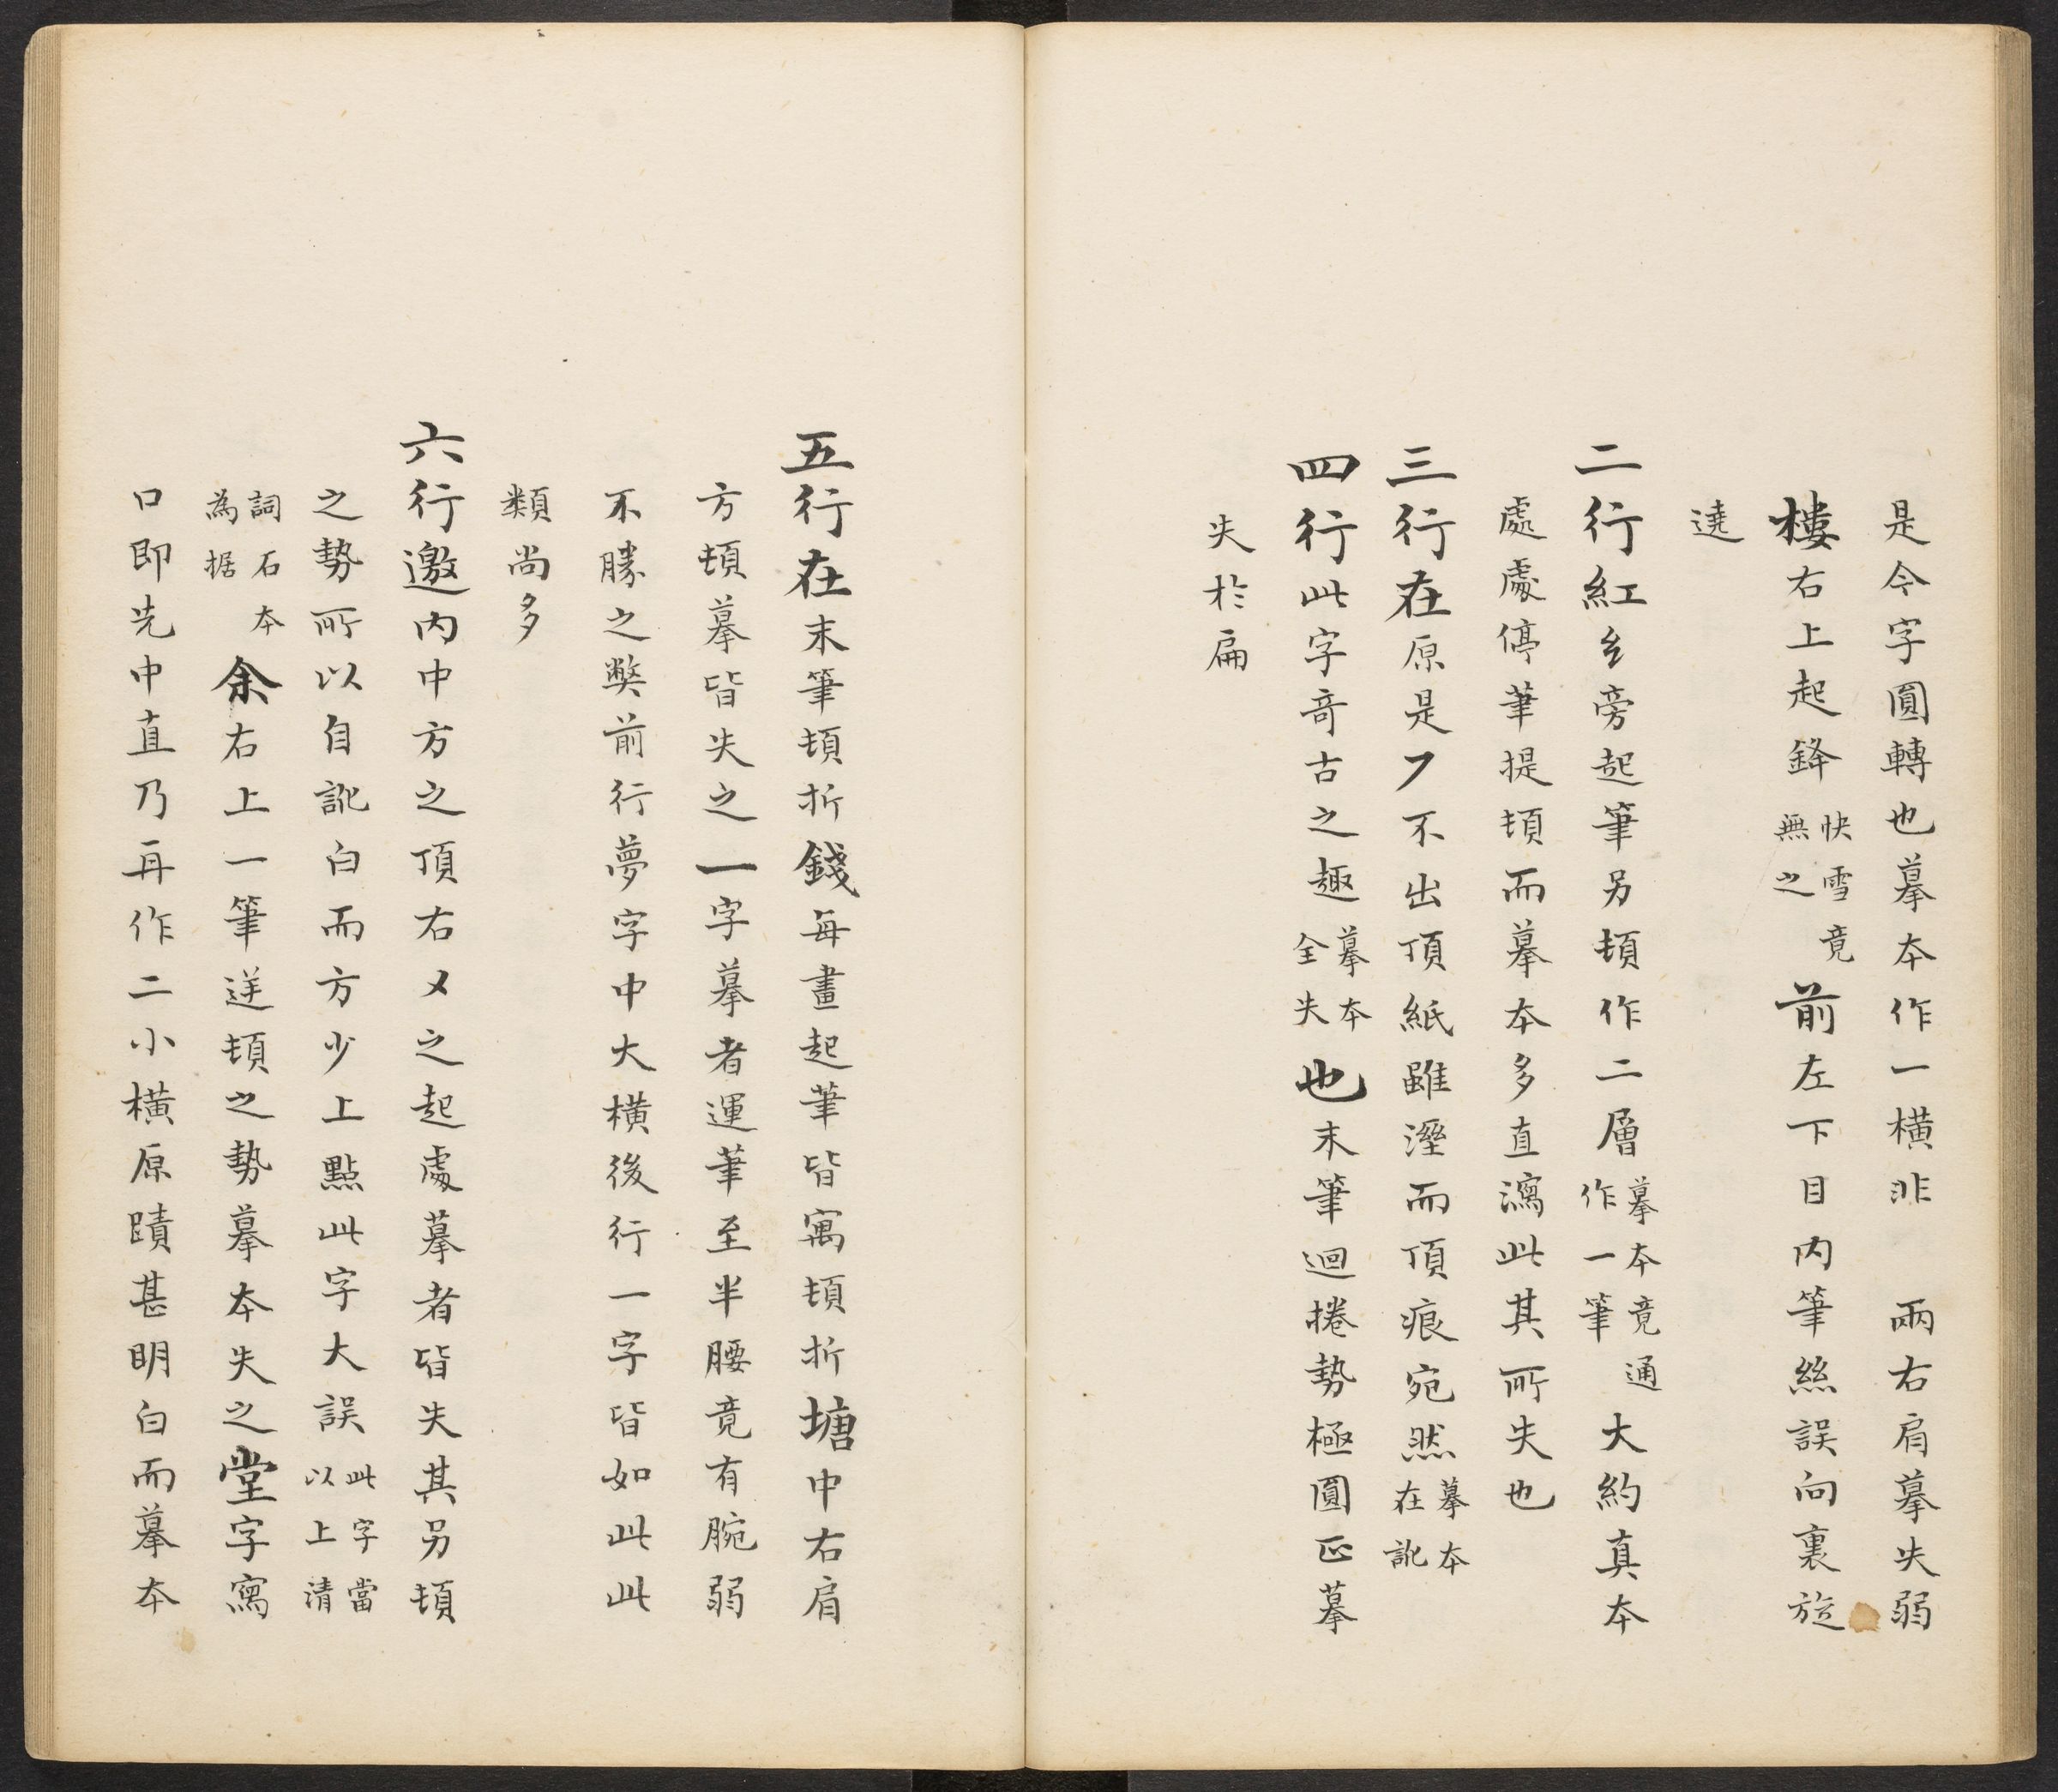 是今字圓轉也摹本作一橫非　兩右肩摹失弱
樓右上起鋒快雪竟無之前左下目内筆絲誤向裏旋
遶
二行紅糹旁起筆另頓作二層摹本竟通作一筆大約真本
處處停筆提頓而摹本多直瀉此其所失也
三行在原是㇇不出頂紙雖溼而頂痕宛然摹本在訛
四行此字竒古之趣摹本全失也末筆迴捲勢極圓正摹
失於扁
五行在末筆頓折錢每畫起筆皆寓頓折塘中右肩
方頓摹皆失之一字摹者運筆至半腰竟有腕弱
不勝之獘前行夢字中大橫後行一字皆如此此
類尚多
六行邀内中方之頂右㐅之起處摹者皆失其另頓
之勢所以自訛白而方少上點此字大誤此字當以上清
詞石本為据余右上一筆逆頓之勢摹本失之堂字寫
口即先中直乃再作二小橫原蹟甚明白而摹本